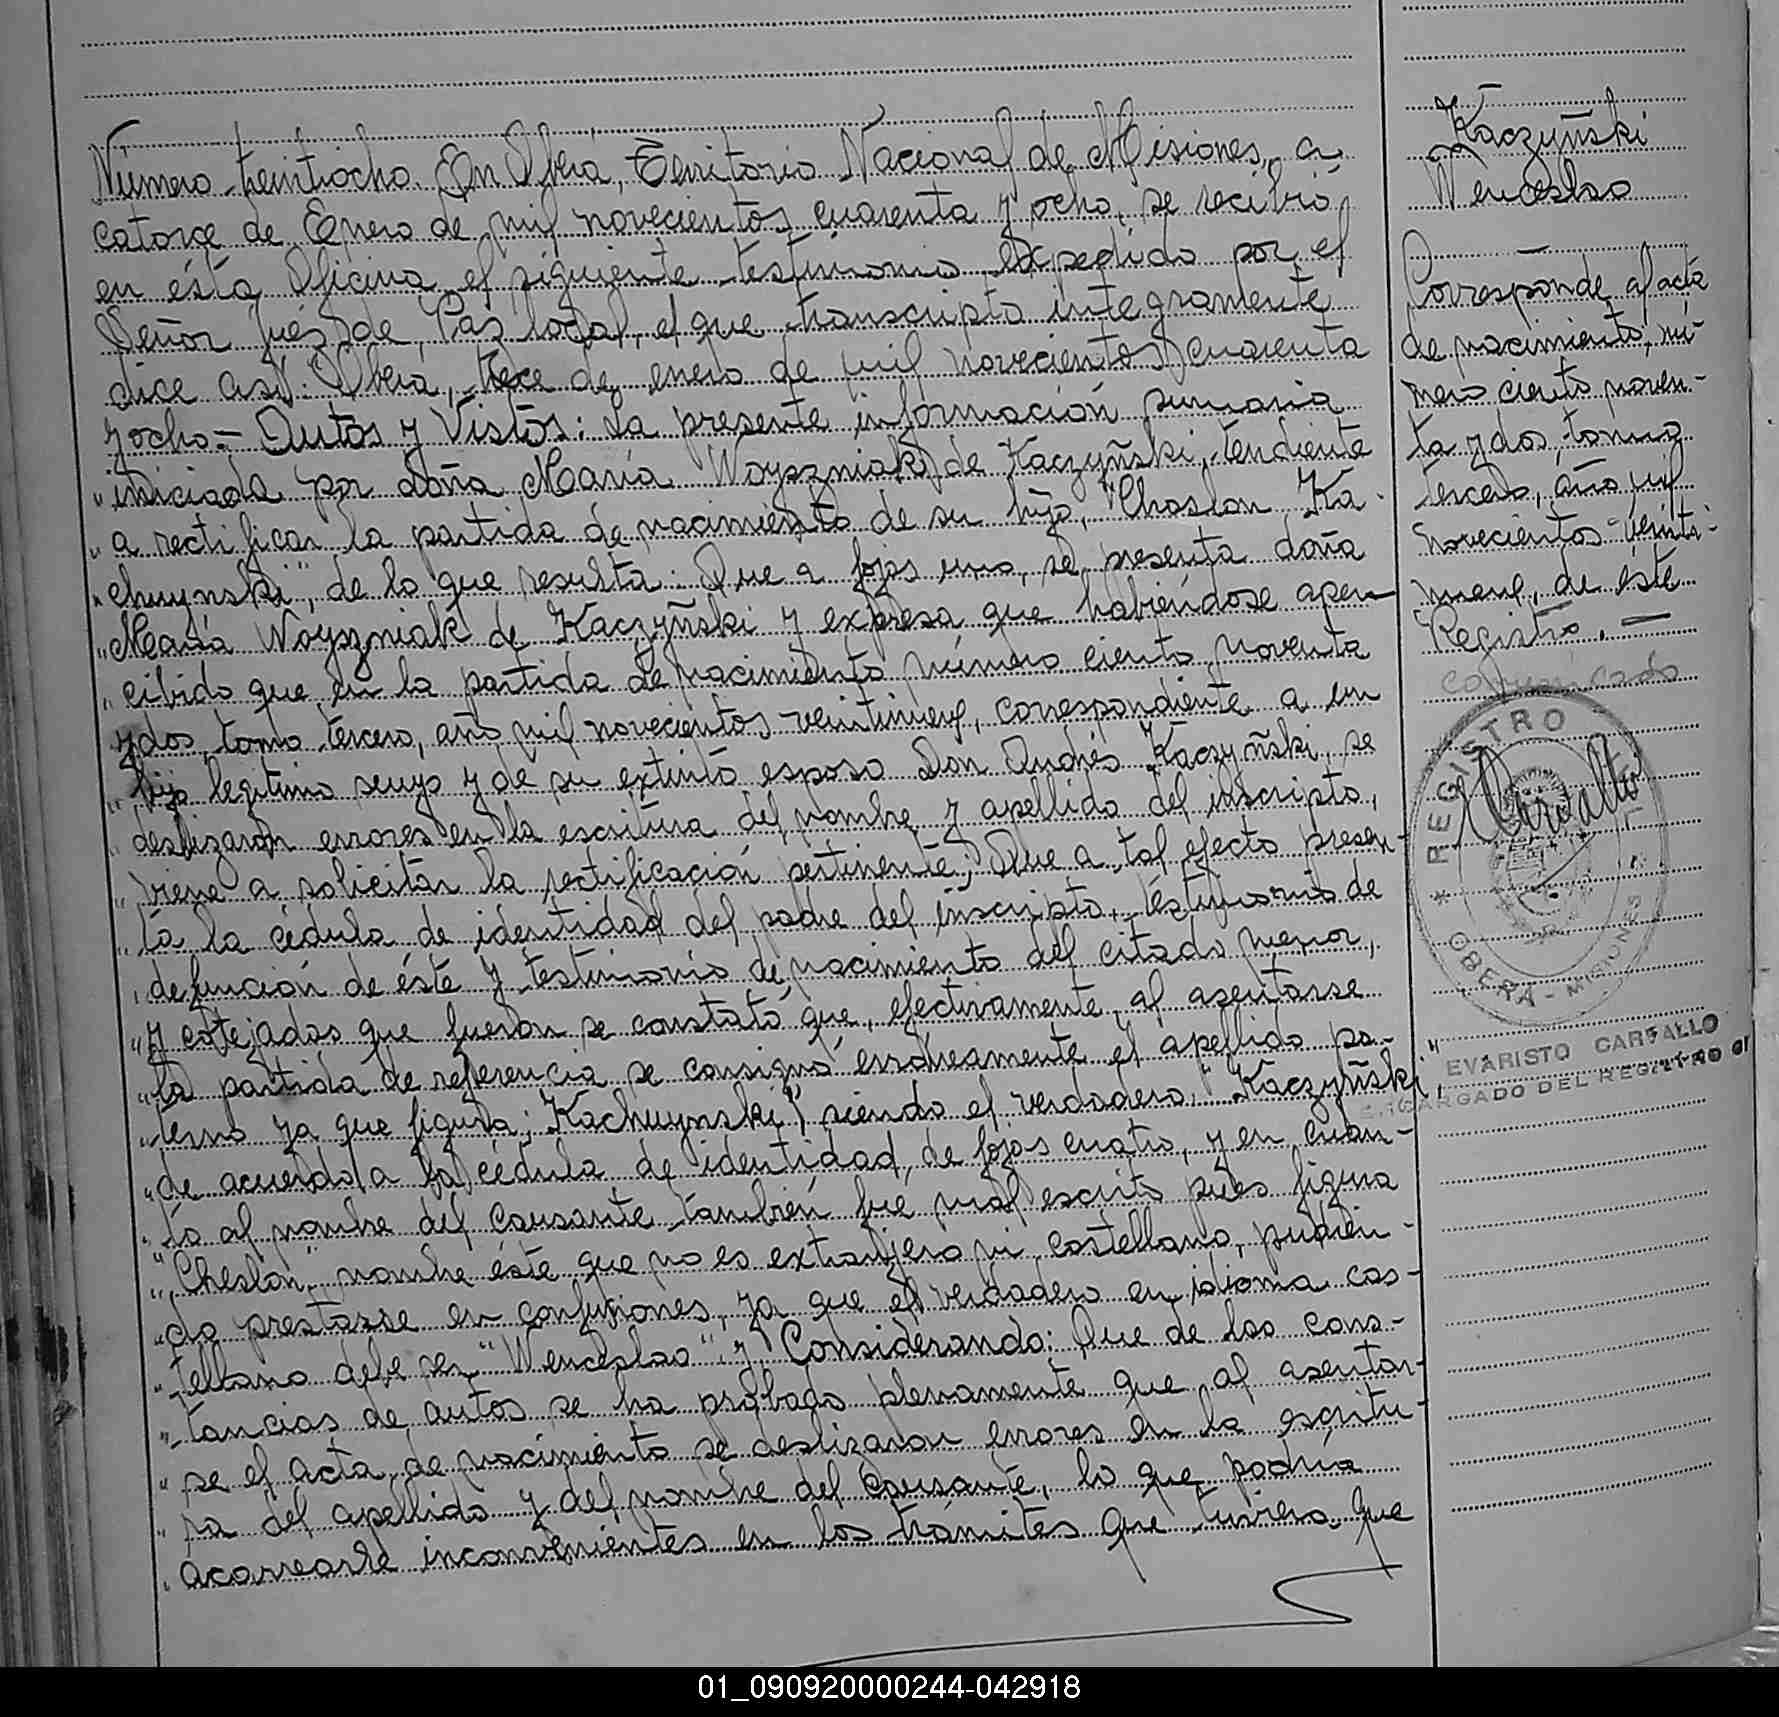 Número treintiocho. En Oberá, Territorio Nacional de Misiones, a
catorce de Enero de mil novecientos cuarenta y ocho, se recibió
en ésta Oficina el siguiente testimonio expedido por el
Señor Juéz de Paz local, el que transcripto integramente
dice así: Oberá, trece de enero de mil novecientos cuarenta
y ocho.- Autos y Vistos: La presente información sumaria
" iniciada por doña María Woyszniak de Kaczyñski, tendiente
" a rectificar la partida de nacimiento de su hijo, "Choslon Ka-
" chuynski", de lo que resulta: Que a fojas uno, se presenta doña
" María Woyszniak de Kaczyñski y expresa que habiéndose aper-
" cibido que en la partida de nacimiento número ciento noventa
y dos, tomo tercero, año mil novecientos veintinueve, correspondiente a un
" hijo legítimo suyo y de su extinto esposo Don Andrés Kaczyñski, se
" deslizaron errores en la escritura del nombre y apellido del inscripto,
" viene a solicitar la rectificación pertinente; Que a tal efecto presen-
" ta la cédula de identidad del padre del inscripto, testimonio de
" defunción de éste y testimonio de nacimiento del citado menor,
" y cotejados que fueron se constató que, efectivamente, al asentarse
" la partida de referencia se consignó erróneamente el apellido pa-
" terno ya que figura; Kachuynski", siendo el verdadero, "Kaczyñski",
" de acuerdo a la cédula de identidad, de fojas cuatro, y en cuan-
" to al nombre del causante también fue mal escrito pues figura
" "Cheslon", nombre éste que no es extranjero ni castellano, pudien-
" do prestarse en confusiones, ya que el verdadero en idioma cas-
" tellano debe ser "Wenceslao" y Considerando: Que de las cons-
" tancias de autos se ha probado plenamente que al asentar-
" se el acta de nacimiento se deslizaron errores en la escritu-
" ra del apellido y del nombre del causante, lo que podría
" acarrearle inconvenientes en los trámites que tuviera que
Kaczyñski
Wenceslao
Corresponde al acta
de nacimiento, nú-
mero ciento noven-
ta y dos, tomo
tercero, año mil
novecientos veinti-
nueve, de éste
Registro. —
comunicado
* REGISTRO CIVIL *
OBERÁ - MISIONES
EVARISTO CARVALLO
ENCARGADO DEL REGISTRO CI
01_090920000244-042918